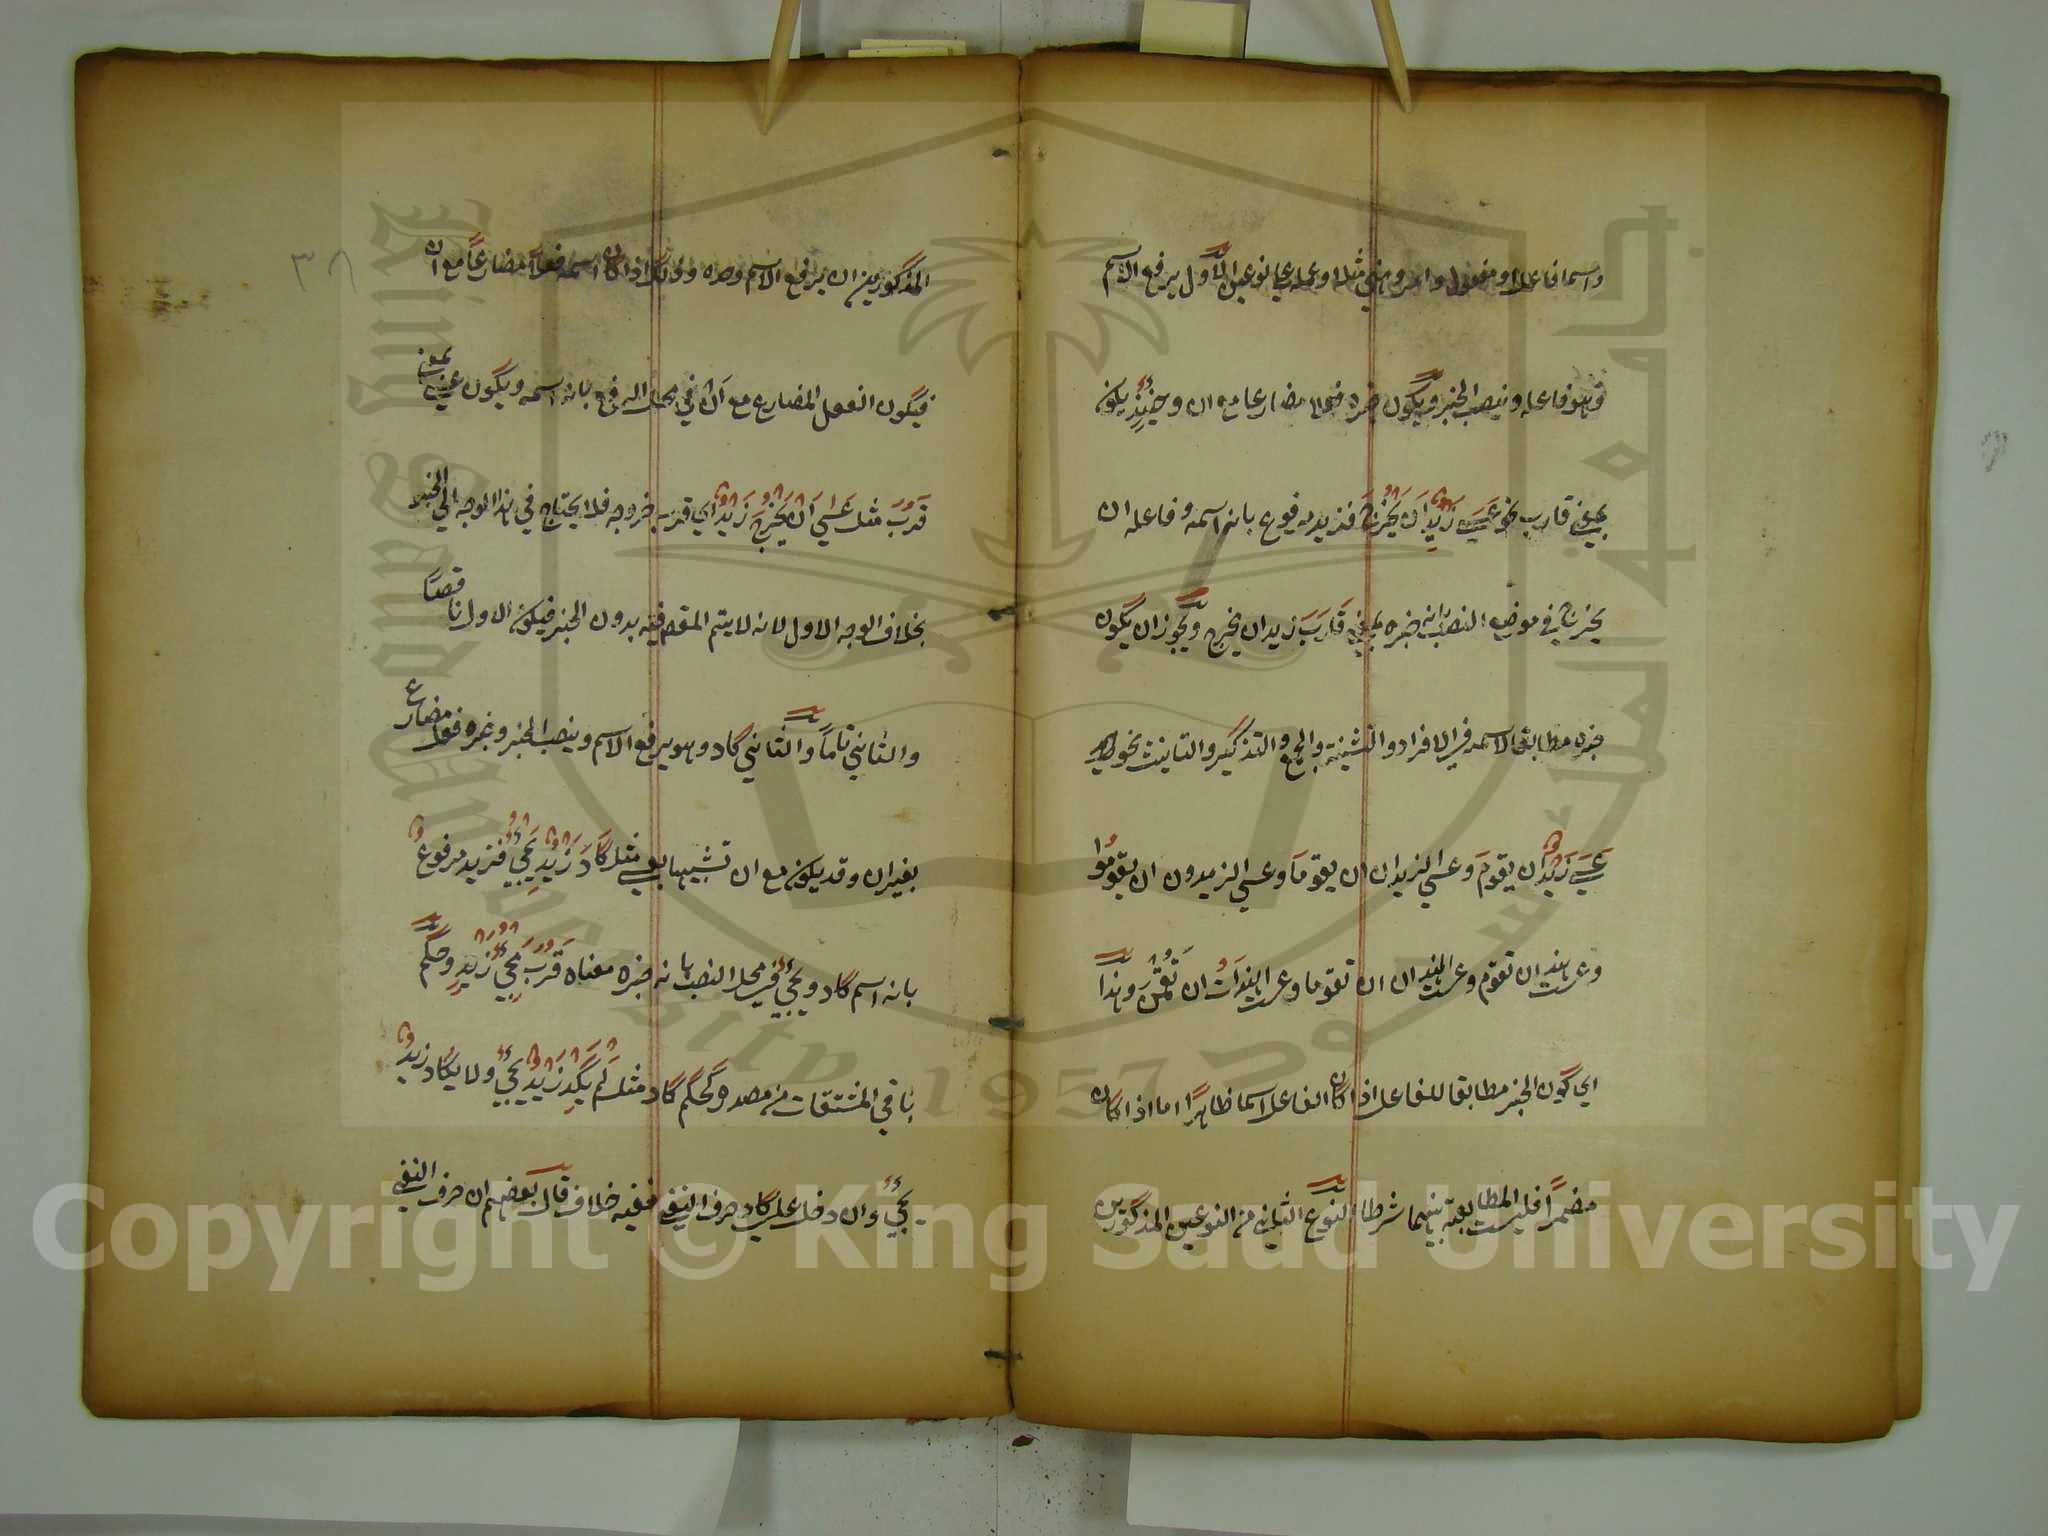 واسما فاعلا او مفعول وامر ونهي مثلا وعمله علي نوعين الاول يرفع الاسم
وهو فاعله وينصب الخبر ويكون خبره فعلا مضارعا مع ان وحينئذ يكون
بمعني قارب نحو عَسَي زَيْدٌ اَن يَخْرُجَ فزيد مرفوع بانه اسمه وفاعله ان
يخرج في موضع النصب بانه خبره بمعني قَارَبَ زيد ان يخرج ويجوز ان يكون
خبره مطابقا لاسمه في الافراد والتثنية والجمع والتذكير والتانيث نحو
عَسَي زَيْدٌ ان يقومَ وعسي الزيدان ان يقومَا وعسي الزيدون ان يقومُوا
وعست هند ان تقوم وعست الهندان ان تقوما وعست الهنداتُ ان تَقُمْنَ وهذا
اي كون الخبر مطابقا للفاعل اذا كان الفاعل اسما ظاهرًا اما اذا كان
مضمرًا فليست المطابقة بينهما شرطا النوع الثاني من النوعين المذكورين
٣٨
المذكورين ان يرفع الاسم وحده وذلك اذا كان اسمه فعلاً مضارعًا مع ان
فيكون الفعل المضارع مع اَنْ في محل الرفع بانه اسمه ويكون عسي بمعني
قَرُبَ مثل عَسَي اَن يَخْرُجَ زَيْدٌ اي قرب خروجه فلا يحتاج في هذا الوجه الي الخبر
بخلاف الوجه الاول لانه لا يتم المقصود فيه بدون الخبر فيكون الاول ناقصًا
والثاني تامًا والثاني كاد وهو يرفع الاسم وينصب الخبر وخبره فعل مضارع
بغير ان وقد يكون مع ان تشبيها بعسي مثل كَادَ زَيْدٌ يَجِيْءُ فزيد مرفوعٌ
بانه اسم كاد ويجيء في محل النصب بانه خبره معناه قَرُبَ مَجِيْءُ زَيْدٍ وحكم
باقي المشتقات من مصدره كحكم كاد مثل لَمْ يَكَدْ زَيْدٌ يَجِيْءُ ولا يكاد زيدٌ
يَجِيْءُ وان دخل علي كاد حرف النفي ففيه خلاف قال بعضهم ان حرف النفي
جامعة الملك سعود
King Saud University
1957
Copyright © King Saud University